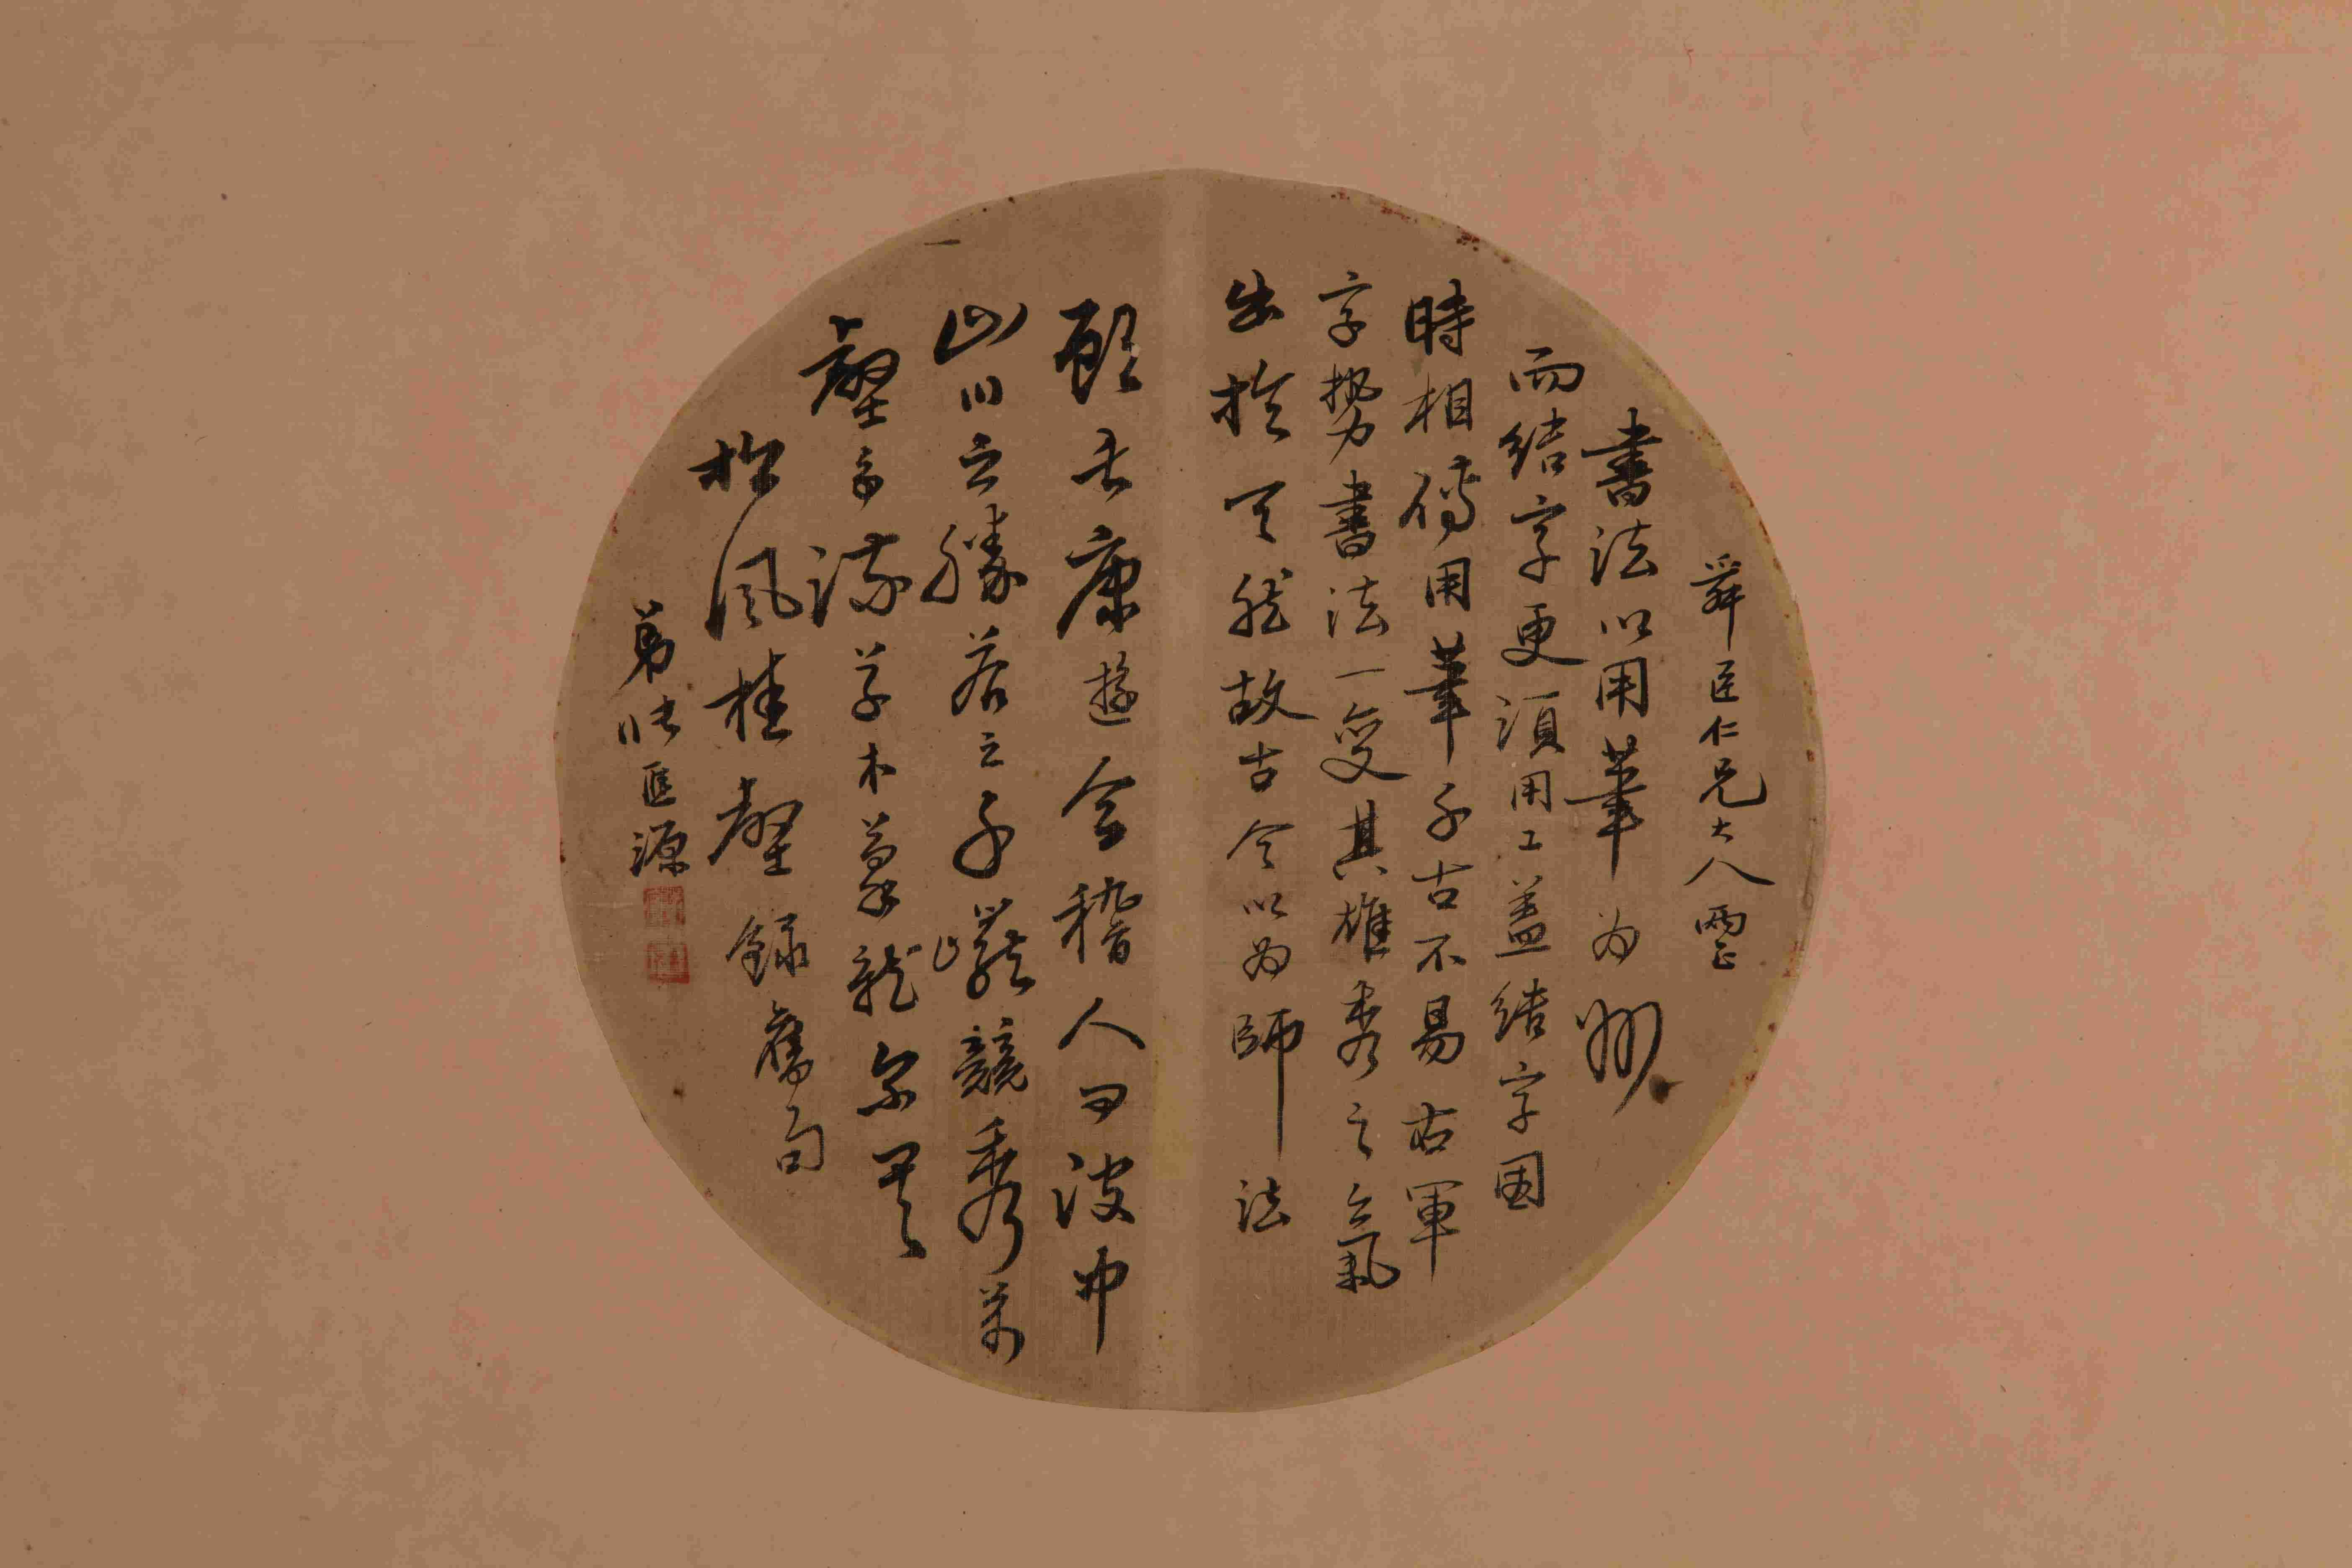 舜臣仁兄大人
書法以用筆為
而結字更須用工蓋結字因
時相傳用筆千古不易右軍
字勢書法一變其雄秀之氣
出於天然故古今以為師法
顧長康遊會稽人問彼中
山川之勝答之千巖競秀萬
壑爭流草木蒙龍
松風桂壑錄舊句
弟張匯源